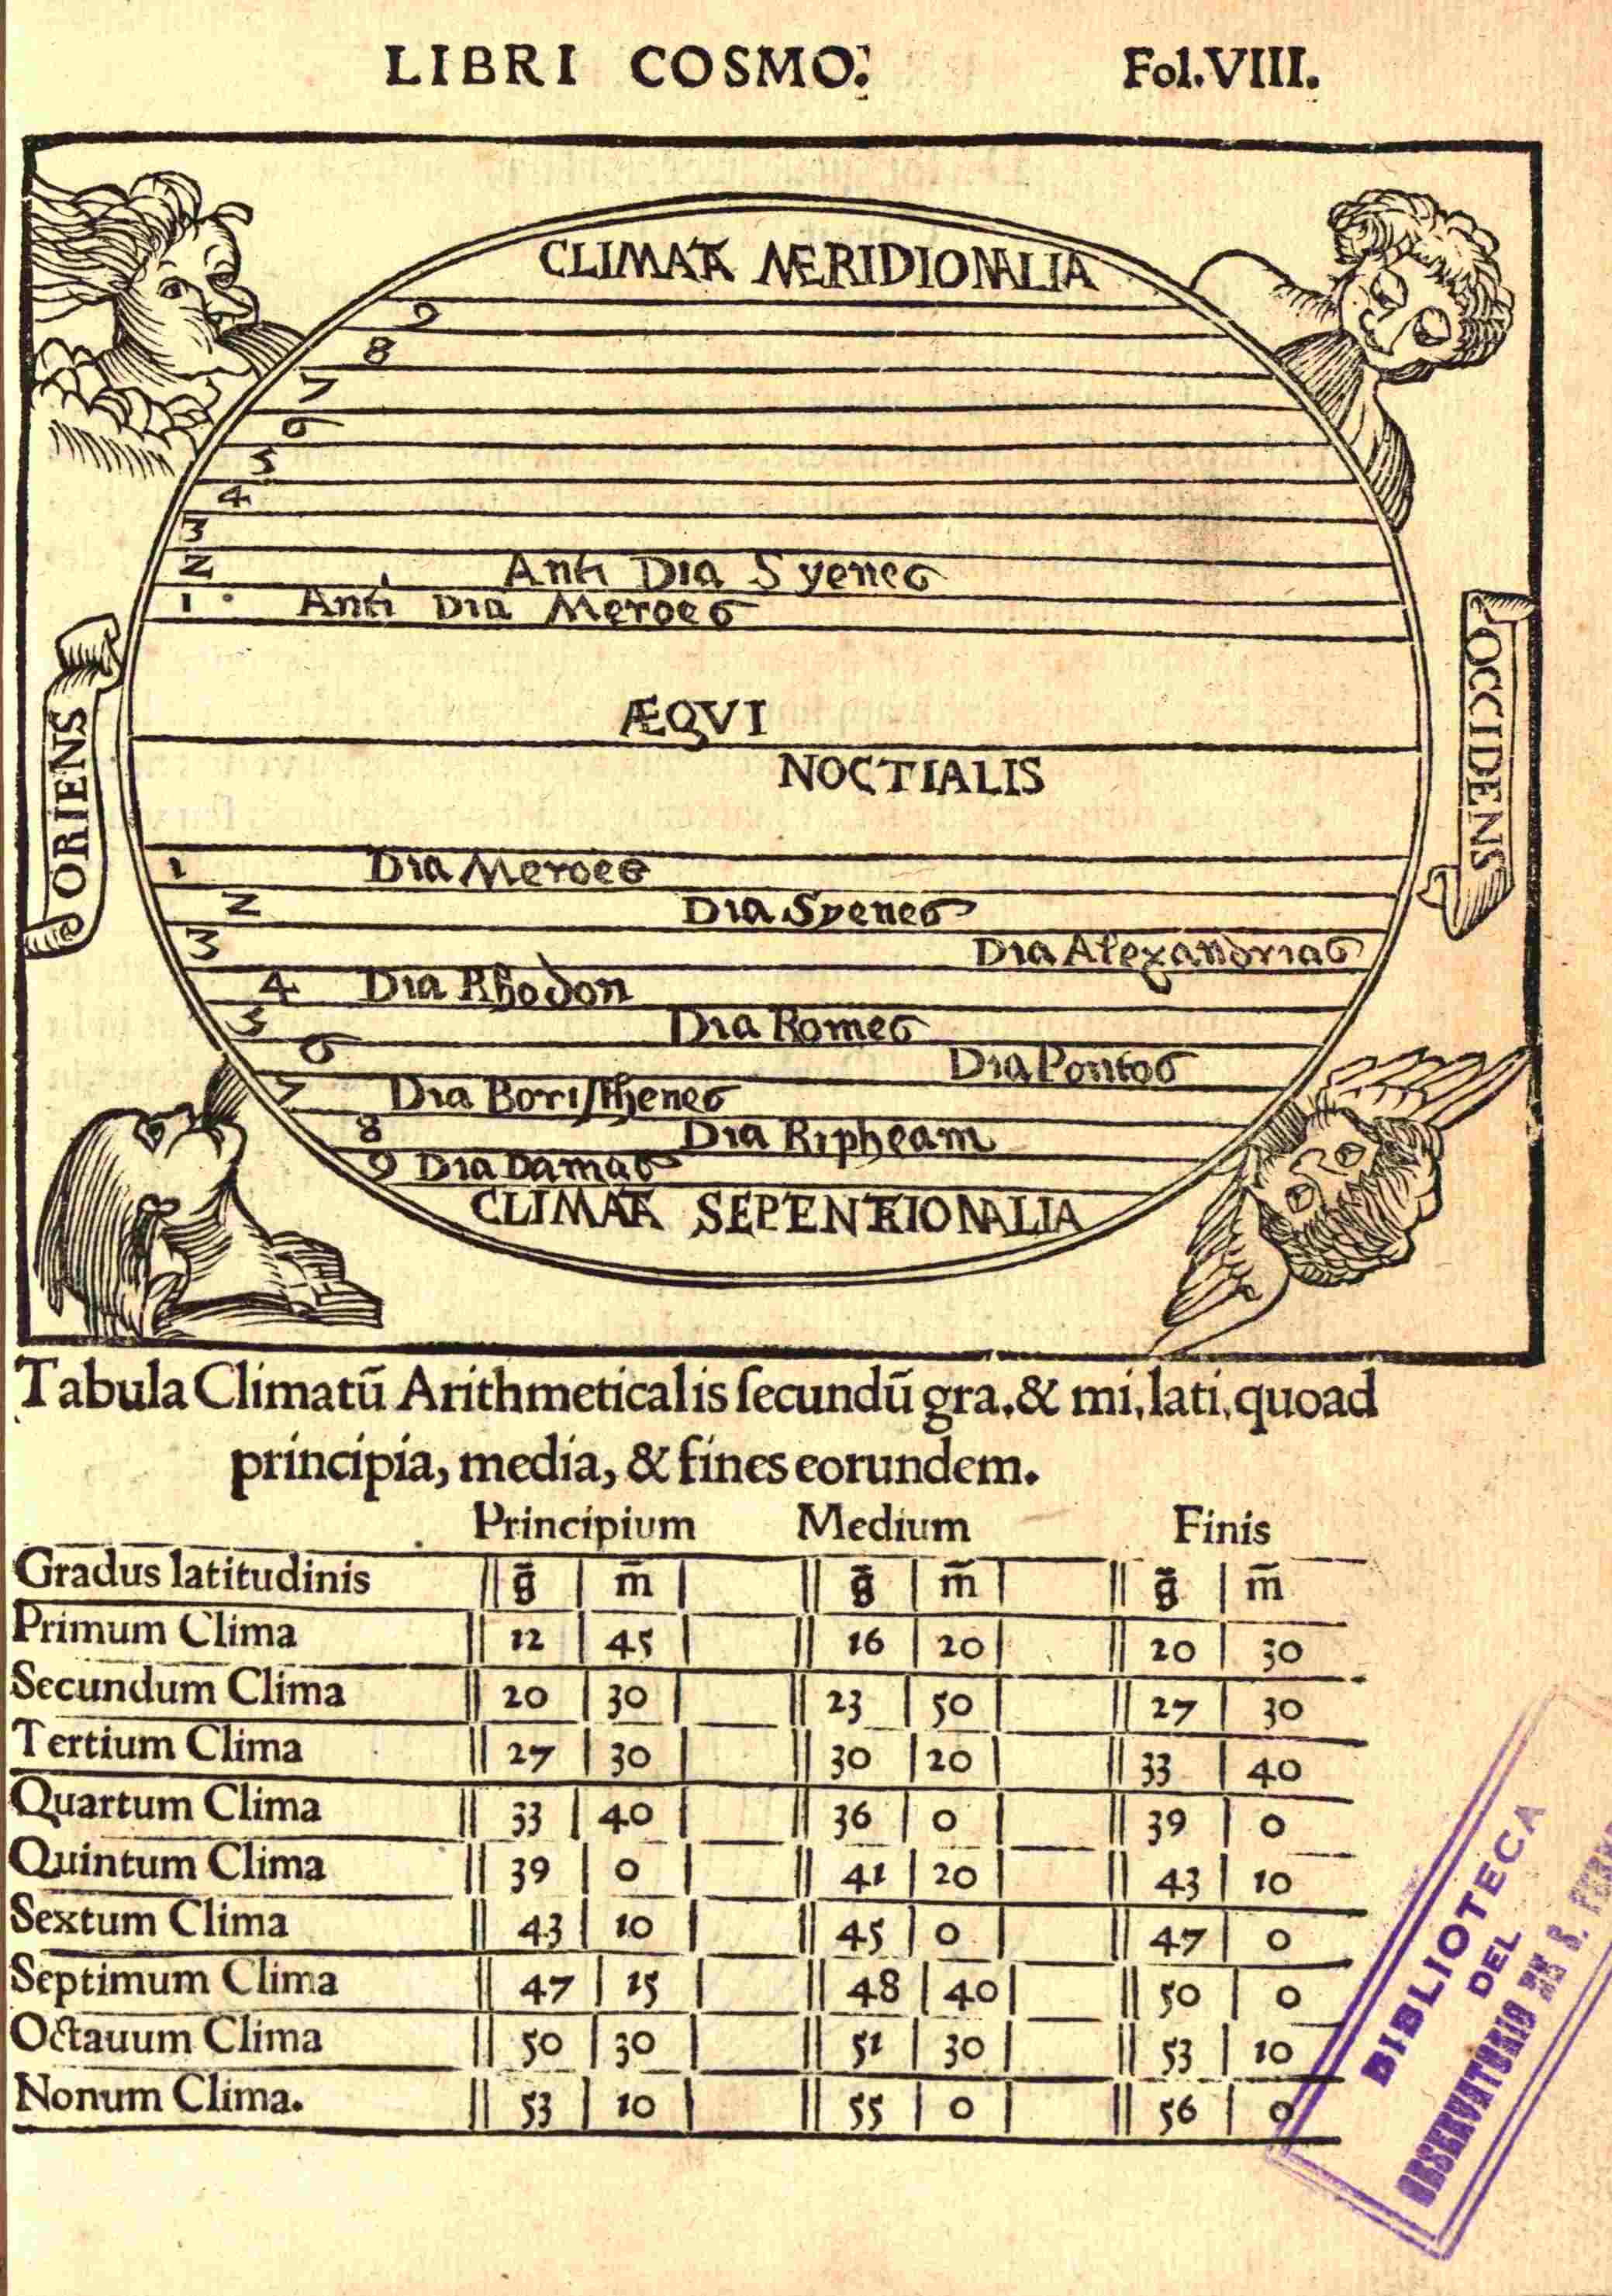 LIBRI COSMO. Fol.VIII.
CLIMATA MERIDIONALIA
9
8
7
6
5
4
3
2 Anti Dia Syenes
1 Anti Dia Meroes
ORIENS
OCCIDENS
ÆQVI
NOCTIALIS
1 Dia Meroes
2 Dia Syenes
3 Dia Alexandrias
4 Dia Rhodon
5 Dia Romes
6 Dia Pontos
7 Dia Boriſthenes
8 Dia Ripheam
9 Dia Damas
CLIMATA SEPENTRIONALIA
Tabula Climatū Arithmeticalis ſecundū gra.& mi.lati.quoad
principia, media, & fines eorundem.
Principium Medium Finis
Gradus latitudinis g̃ m̄ g̃ m̄ g̃ m̄
Primum Clima 12 45 16 20 20 30
Secundum Clima 20 30 23 50 27 30
Tertium Clima 27 30 30 20 33 40
Quartum Clima 33 40 36 0 39 0
Quintum Clima 39 0 41 20 43 10
Sextum Clima 43 10 45 0 47 0
Septimum Clima 47 15 48 40 50 0
Octauum Clima 50 30 51 30 53 10
Nonum Clima. 53 10 55 0 56 0
BIBLIOTECA
DEL
OBSERVATORIO DE S.